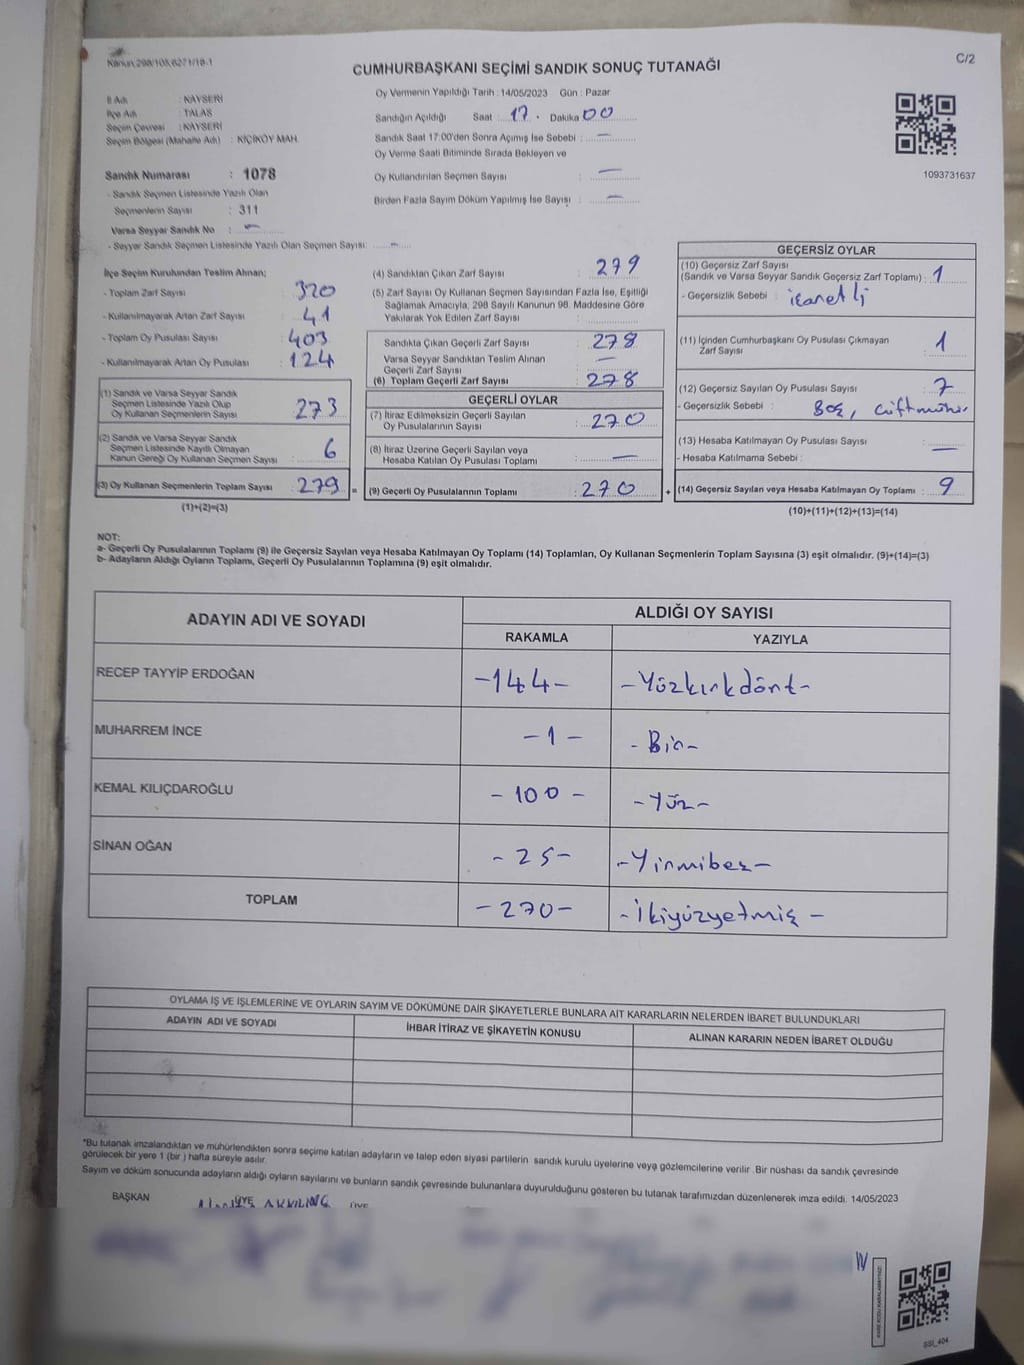 Kanun.298/105,6271/18-1
C/2
CUMHURBAŞKANI SEÇİMİ SANDIK SONUÇ TUTANAĞI
Oy Vermenin Yapıldığı Tarih : 14/05/2023 Gün : Pazar
İl Adı : KAYSERİ
İlçe Adı : TALAS
Seçim Çevresi : KAYSERİ
Seçim Bölgesi (Mahalle Adı) : KİÇİKÖY MAH.
Sandık Numarası : 1078
- Sandık Seçmen Listesinde Yazılı Olan
Seçmenlerin Sayısı : 311
Varsa Seyyar Sandık No : -
- Seyyar Sandık Seçmen Listesinde Yazılı Olan Seçmen Sayısı: -
Sandığın Açıldığı Saat : 17 . Dakika 00
Sandık Saat 17:00'den Sonra Açımış İse Sebebi : -
Oy Verme Saati Bitiminde Sırada Bekleyen ve
Oy Kullandırılan Seçmen Sayısı : -
Birden Fazla Sayım Döküm Yapılmış İse Sayısı : -
1093731637
İlçe Seçim Kurulundan Teslim Alınan;
- Toplam Zarf Sayısı : 320
- Kullanılmayarak Artan Zarf Sayısı : 41
- Toplam Oy Pusulası Sayısı : 403
- Kullanılmayarak Artan Oy Pusulası : 124
(1) Sandık ve Varsa Seyyar Sandık
Seçmen Listesinde Yazılı Olup
Oy Kullanan Seçmenlerin Sayısı : 273
(2) Sandık ve Varsa Seyyar Sandık
Seçmen Listesinde Kayıtlı Olmayan
Kanun Gereği Oy Kullanan Seçmen Sayısı : 6
(3) Oy Kullanan Seçmenlerin Toplam Sayısı : 279 =
(1)+(2)=(3)
(4) Sandıktan Çıkan Zarf Sayısı : 279
(5) Zarf Sayısı Oy Kullanan Seçmen Sayısından Fazla İse, Eşitliği
Sağlamak Amacıyla, 298 Sayılı Kanunun 98. Maddesine Göre
Yakılarak Yok Edilen Zarf Sayısı :
Sandıkta Çıkan Geçerli Zarf Sayısı : 278
Varsa Seyyar Sandıktan Teslim Alınan
Geçerli Zarf Sayısı : -
(6) Toplam Geçerli Zarf Sayısı : 278
GEÇERLİ OYLAR
(7) İtiraz Edilmeksizin Geçerli Sayılan
Oy Pusulalarının Sayısı : 270
(8) İtiraz Üzerine Geçerli Sayılan veya
Hesaba Katılan Oy Pusulası Toplamı : -
(9) Geçerli Oy Pusulalarının Toplamı : 270 +
GEÇERSİZ OYLAR
(10) Geçersiz Zarf Sayısı
(Sandık ve Varsa Seyyar Sandık Geçersiz Zarf Toplamı) : 1
- Geçersizlik Sebebi : işaretli
(11) İçinden Cumhurbaşkanı Oy Pusulası Çıkmayan
Zarf Sayısı : 1
(12) Geçersiz Sayılan Oy Pusulası Sayısı : 7
- Geçersizlik Sebebi : Boş, Çiftmühür
(13) Hesaba Katılmayan Oy Pusulası Sayısı : -
- Hesaba Katılmama Sebebi :
(14) Geçersiz Sayılan veya Hesaba Katılmayan Oy Toplamı : 9
(10)+(11)+(12)+(13)=(14)
NOT:
a- Geçerli Oy Pusulalarının Toplamı (9) ile Geçersiz Sayılan veya Hesaba Katılmayan Oy Toplamı (14) Toplamları, Oy Kullanan Seçmenlerin Toplam Sayısına (3) eşit olmalıdır. (9)+(14)=(3)
b- Adayların Aldığı Oyların Toplamı, Geçerli Oy Pusulalarının Toplamına (9) eşit olmalıdır.
ADAYIN ADI VE SOYADI
ALDIĞI OY SAYISI
RAKAMLA YAZIYLA
RECEP TAYYİP ERDOĞAN -144- -Yüzkırkdört-
MUHARREM İNCE -1- -Bir-
KEMAL KILIÇDAROĞLU -100- -Yüz-
SİNAN OĞAN -25- -Yirmibeş-
TOPLAM -270- -İkiyüzyetmiş-
OYLAMA İŞ VE İŞLEMLERİNE VE OYLARIN SAYIM VE DÖKÜMÜNE DAİR ŞİKAYETLERLE BUNLARA AİT KARARLARIN NELERDEN İBARET BULUNDUKLARI
ADAYIN ADI VE SOYADI İHBAR İTİRAZ VE ŞİKAYETİN KONUSU ALINAN KARARIN NEDEN İBARET OLDUĞU
*Bu tutanak imzalandıktan ve mühürlendikten sonra seçime katılan adayların ve talep eden siyasi partilerin sandık kurulu üyelerine veya gözlemcilerine verilir. Bir nüshası da sandık çevresinde
görülecek bir yere 1 (bir ) hafta süreyle asılır.
Sayım ve döküm sonucunda adayların aldığı oyların sayılarını ve bunların sandık çevresinde bulunanlara duyurulduğunu gösteren bu tutanak tarafımızdan düzenlenerek imza edildi. 14/05/2023
BAŞKAN ÜYE ÜYE
SSI_404